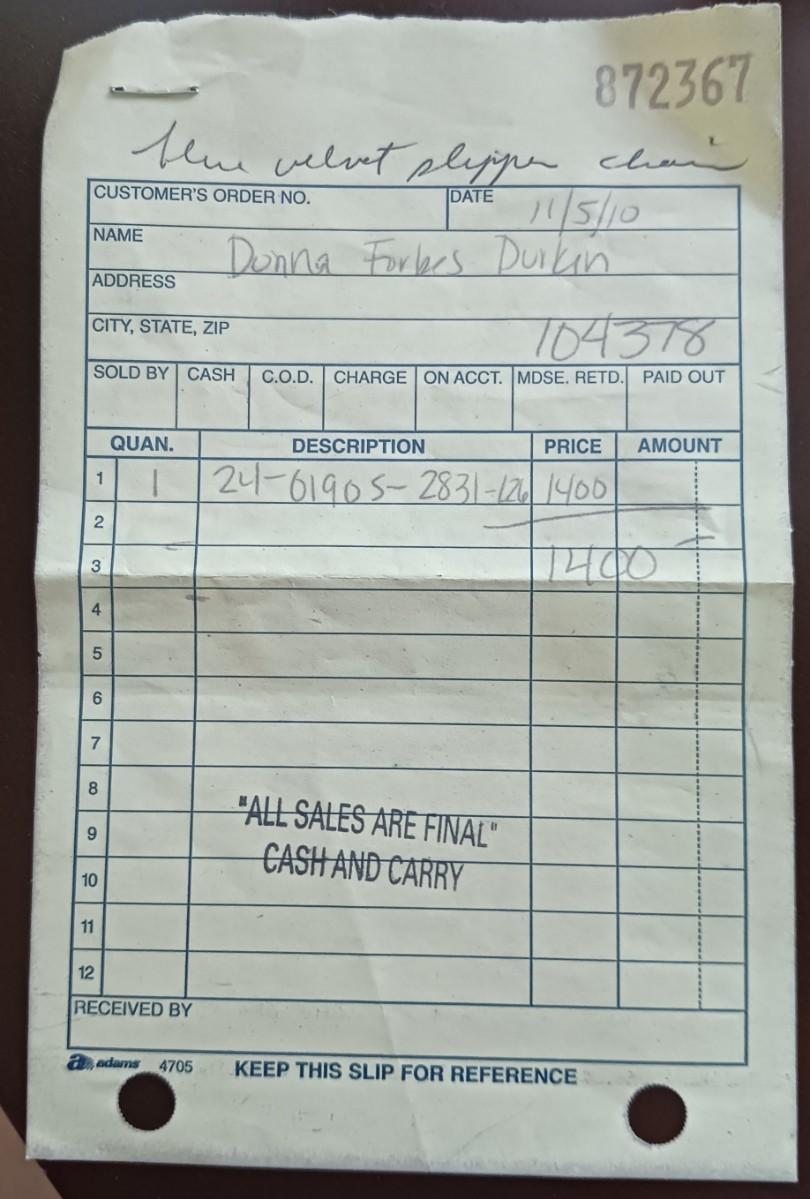 872367
blue velvet slipper chair
CUSTOMER'S ORDER NO. DATE 11/5/10
NAME Donna Forbes Durkin
ADDRESS
CITY, STATE, ZIP 104378
SOLD BY CASH C.O.D. CHARGE ON ACCT. MDSE. RETD. PAID OUT
QUAN. DESCRIPTION PRICE AMOUNT
1 1 24-01905-2831-126 1400
2
3 1400
4
5
6
7
8
"ALL SALES ARE FINAL"
9
CASH AND CARRY
10
11
12
RECEIVED BY
a adams 4705 KEEP THIS SLIP FOR REFERENCE